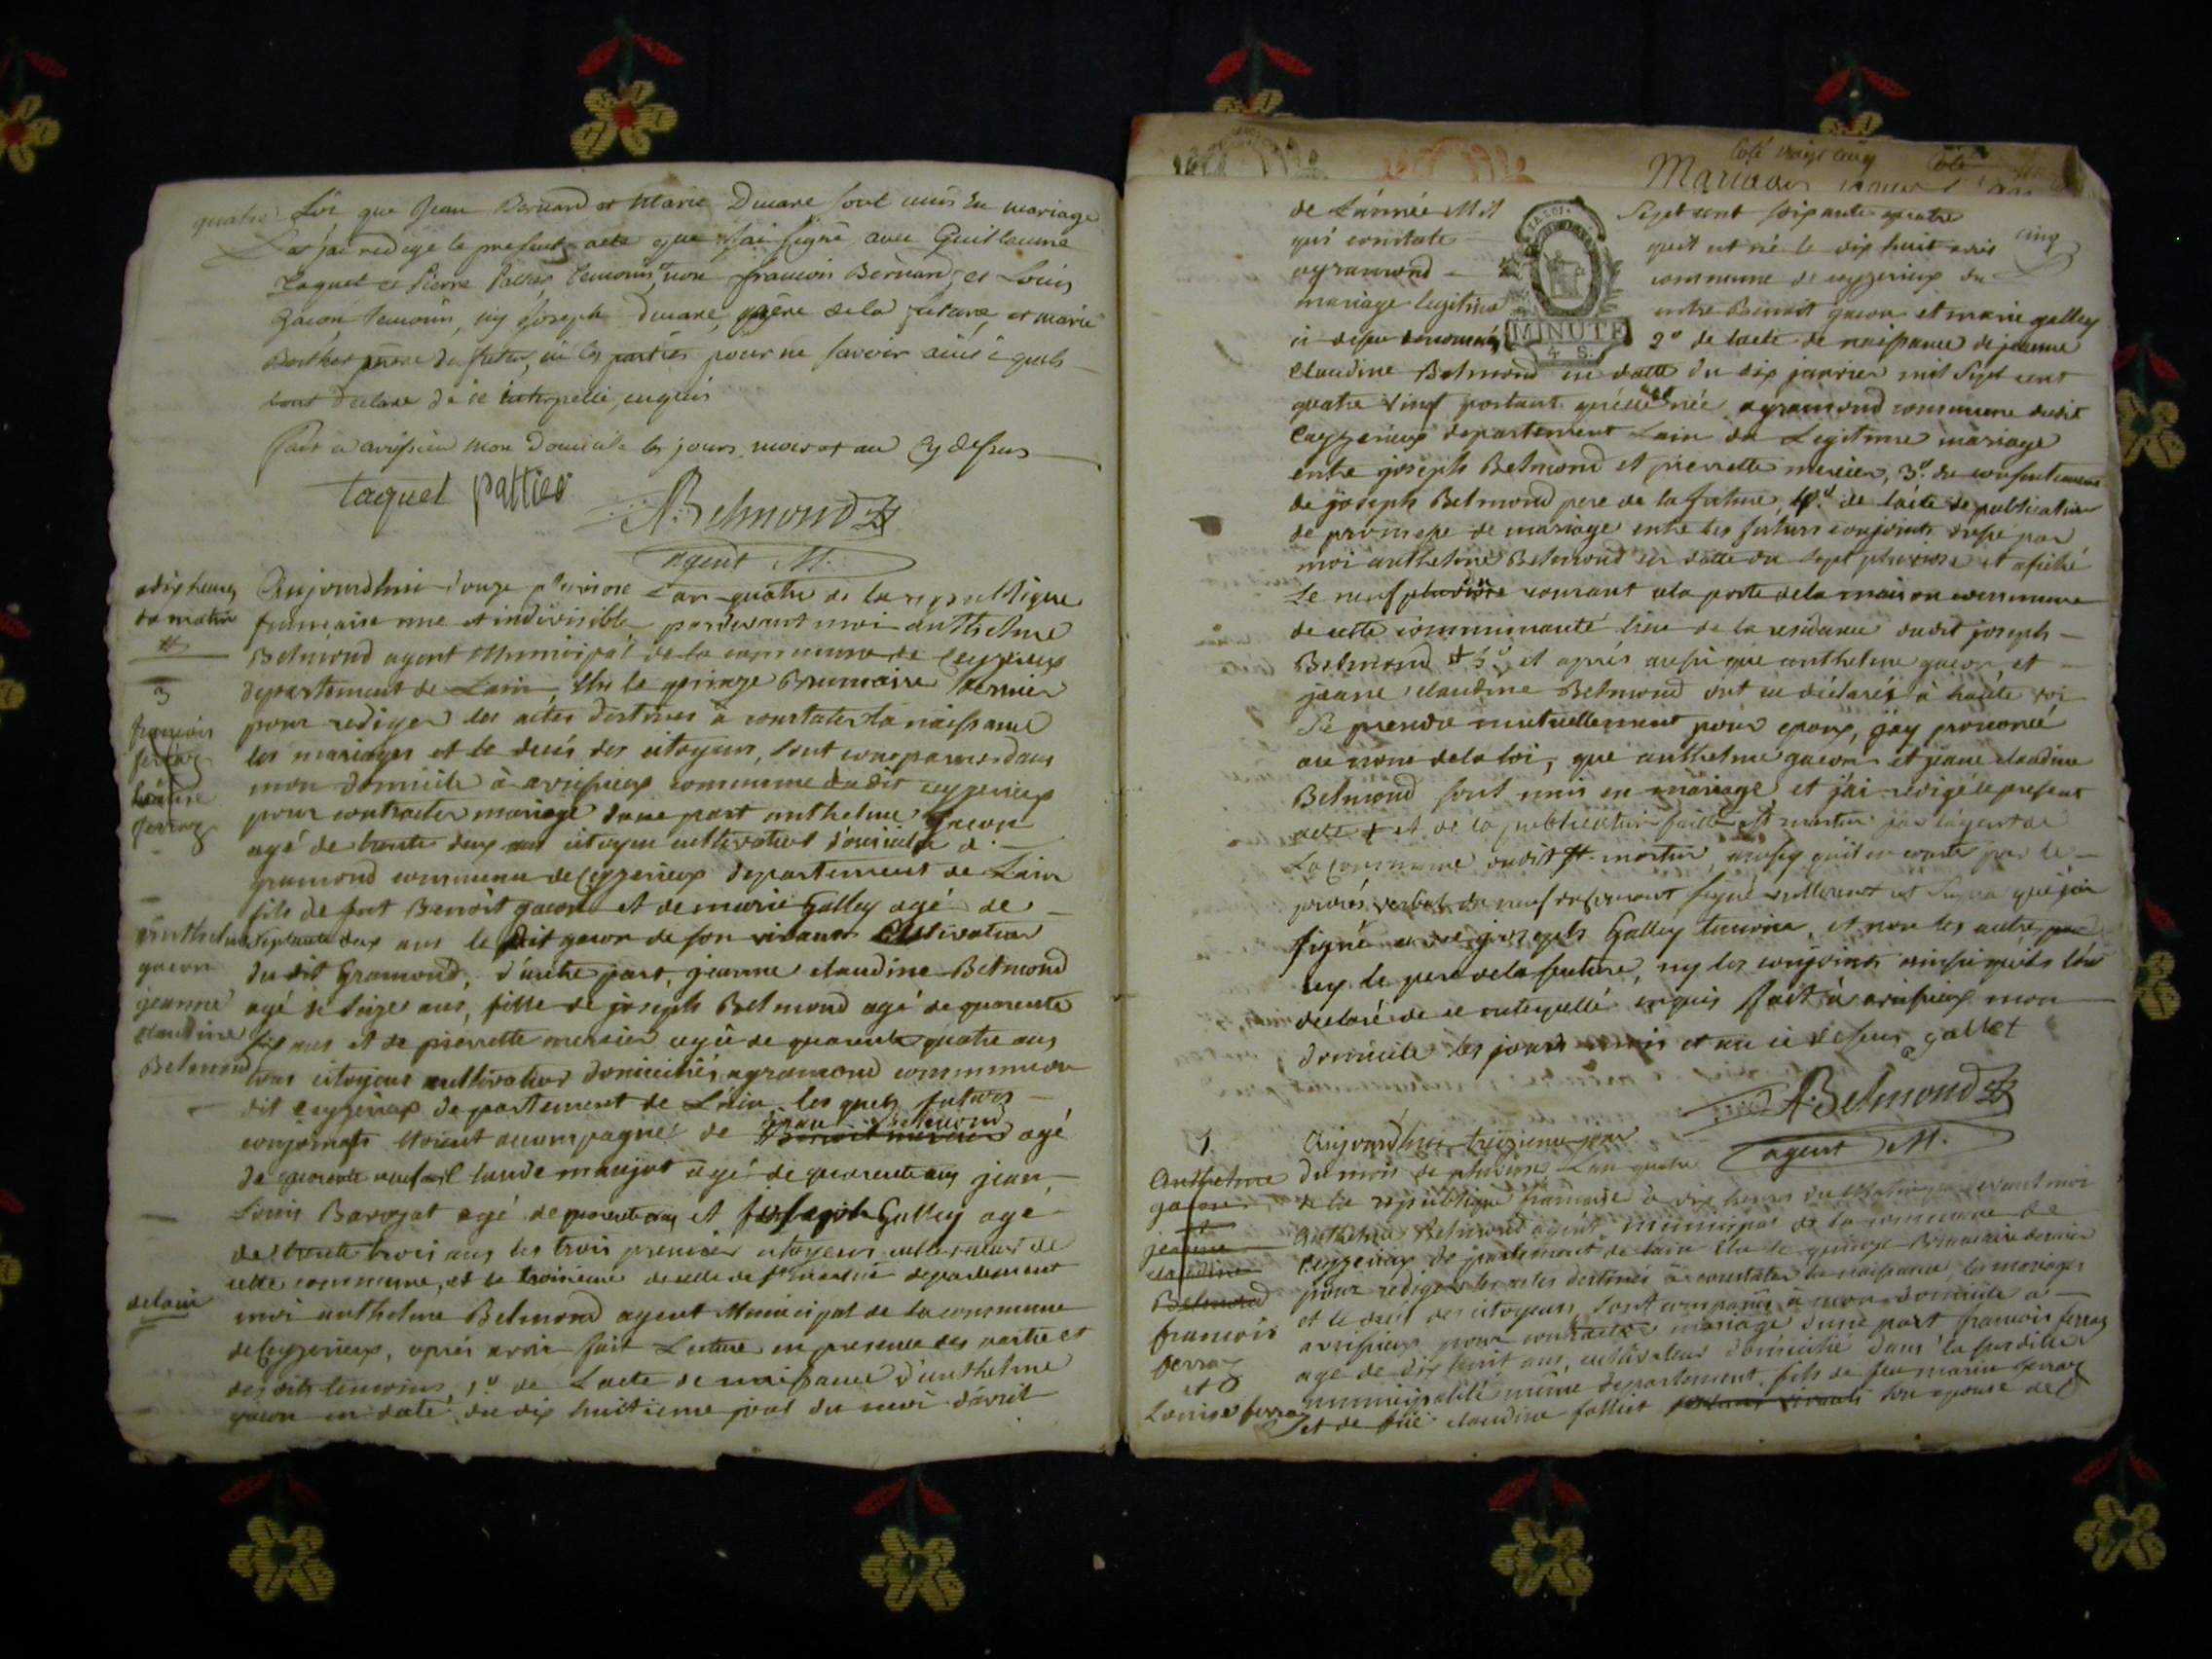 quatre
Loi que Jean Bernard et Marie Ducare sont unis en mariage
et j'ai redigé le present acte que j'ai signé avec Guillaume
taquet et Pierre Pattier temoins, non francois Bernard, et Louis
Gacon temoins, ny Joseph Ducare, père de la future, et marie
Berthet mère du futur, ni les parties pour ne savoir ainsi quils
lont declare de ce interpellé, enquis
fait a avrissieu mon Domicile les jours mois et an cy dessus
taquet pattier
A. Belmond
agent M.
a dix heures
du matin
Aujourdhui douze pluviose Lan quatre de la republique
francaise une et indivisible pardevant moi anthelme
Belmond agent Municipal de la commune de Ceyzerieux
departement de Lain, elu le quinze Brumaire dernier
pour rediger les actes destinés à constater la naissance
les mariages et le decés des citoyens, sont comparus dans
mon domicile à avrissieux commune dudit ceyzerieux
pour contracter mariage dune part anthelme gacon
agé de trente deux ans citoyen cultivateur domicilié a
gramond commune de Ceyzerieux departement de Lain
fils de fut Benoit gacon et de marie Galley agé de
septante deux ans le dit gacon de son vivant Cultivateur
du dit Gramond, d'autre part, jeanne claudine Belmond
agé de seize ans, fille de joseph Belmond agé de quarente
six ans et de pierrette mercier agée de quarente quatre ans
tous citoyens cultivateur domiciliés agramond commune du
dit ceyzerieux departement de Lain, les quels futurs
conjoints etoient accompagnés de jean Belmond agé
de quarente neuf claude maujot agé de quarente ans jean
Louis Barojat agé de quarente ans et joseph Galley agé
de trente trois ans les trois premier citoyens cultivateurs de
cette commune, et le troisieme de celle de St martin departement
moi anthelme Belmond agent Municipal de la commune
de Ceyzerieux, aprés avoir fait Lecture en presence des partie et
des dits temoins, 1° de Lacte de naissance d'anthelme
gacon en date du dix huitieme jour du moi d'avril
3
francois
ferraz
Louise
ferraz
anthelme
gacon
jeanne
claudine
Belmond
delain
Coté vingt cinq
cinq
de L'année Mil
qui constate
agramond
mariage legitime
ci dessu denommé,
MINUTE
4 S.
Sept cent soixante quatre
quil est né le dix huit avril
commune de ceyzerieux du
entre Benoit gacon et marie galley
2° de lacte de naissance de jeanne
claudine Belmond en datte du dix janvier mil sept cent
quatre vingt portant qu'elle est née agramond commune dudit
Ceyzerieux departement Lain du Legitime mariage
entre joseph Belmond et pierrette mercier, 3° du consentement
de joseph Belmond pere de la future, 4° de lacte de publication
de promesse de mariage entre les futurs conjoints dressé par
moi anthelme Belmond en datte du sept pluviose et afiché
Le neuf du courant ala porte dela maison commune
de cette communauté lieu de la residance dudit joseph
Belmond + 5° et aprés aussi que anthelme gacon et
jeanne claudine Belmond ont eu déclarés à haute voi
Se prendre mutuellement pour epoux, j'ay prononcé
au nom dela loi, que anthelme gacon et jeanne claudine
Belmond sont unis en mariage et j'ai redigé le present
acte + et de la publication faitte a St martin par lagent de
La commune dudit St martin, ainsy quil en conste par le
procés verbal du neuf du courant signé et que j'ai
signé avec joseph Galley temoin, et non les autre
ny le pere dela future, ny les conjoints ainsi quils lont
declaré de ce interpellé enquis fait à avrissieux mon
domicile les jours mois et an ci dessus gallet
A. Belmond
agent M.
1
Anthelme
gacon
et
jeanne
claudine
Belmond
francois
ferraz
et
Louise ferraz
Aujourdhui treizieme jour
du mois de pluviose Lan quatre
de la republique francaise a dix heures du Matin pardevant moi
anthelme Belmond agent municipal de la commune de
Ceyzerieux departement de lain elu le quinze Brumaire dernier
pour rediger les actes destinés à constater la naissance, les mariages
et le decés des citoyens, sont comparus à mon domicile a
avrissieux pour contracter mariage dune part francois ferraz
agé de dix huit ans, cultivateur domicilié dans la susdite
municipalité même departement fils de feu marin ferraz
et de claudine folliet son epouse